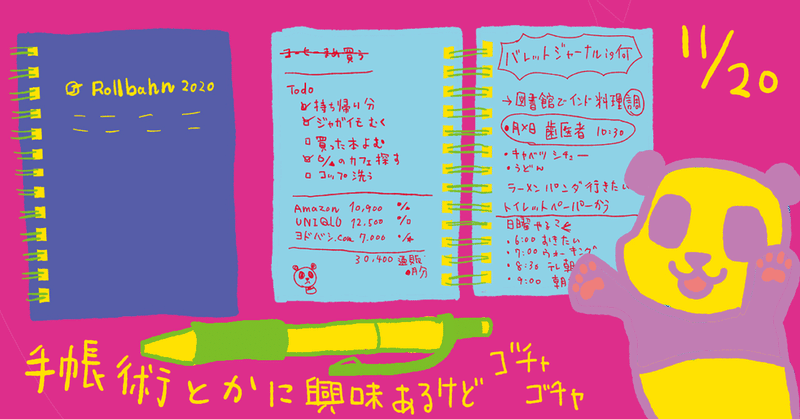 Rollbahn 2020
コーヒーまめ買う
Todo
持ち帰り分
ジャガイモむく
買った本よむ
%のカフェ探す
コップ洗う
Amazon 10,900
UNIQLO 12,500
ヨドバシ.com 7,000
30,400 通販
月分
バレットジャーナル is 何
→図書館でインド料理調
月×日 歯医者 10:30
・キャベツ シチュー
・うどん
ラーメンパンダ行きたい
トイレットペーパーかう
日曜やること
・6:00 おきたい
・7:00 ウォーキング
・8:30 テレ朝
・9:00 朝
11/20
手帳術とかに興味あるけど
ゴチャ
ゴチャ